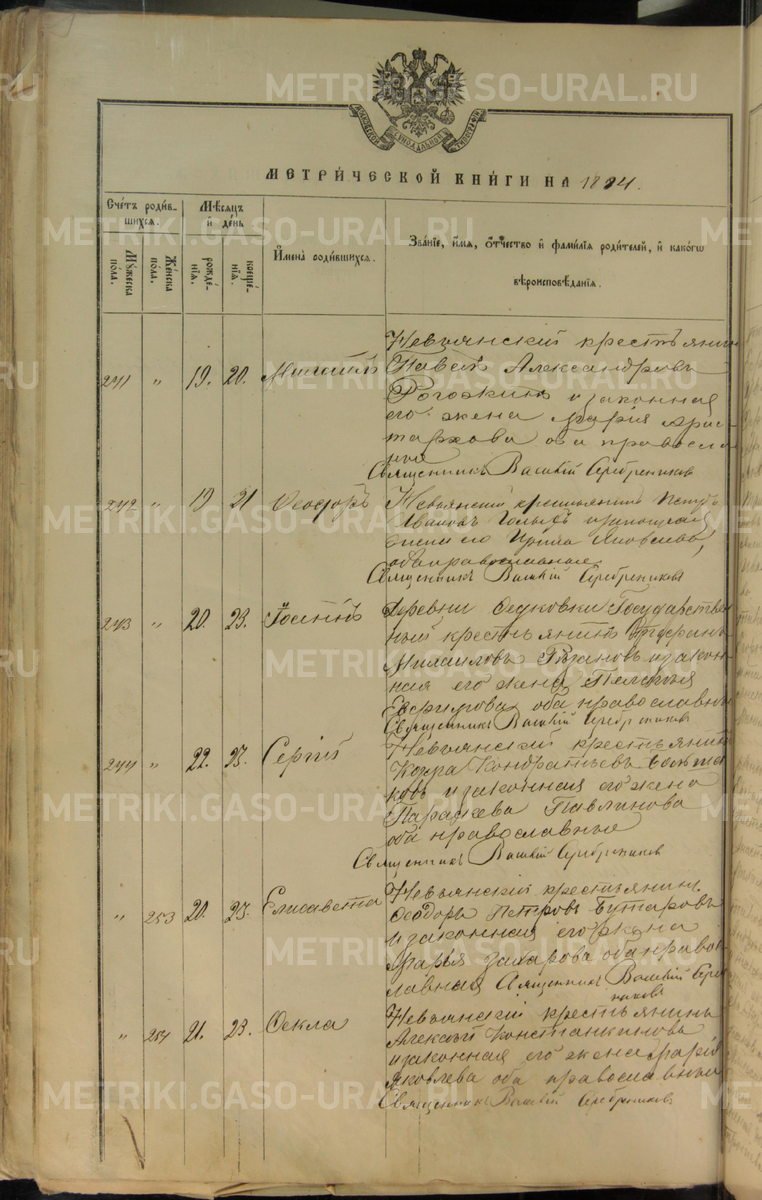 METRIKI.GASO-URAL.RU
МОСКОВСКОЙ СѴНОДАЛЬНОЙ ТИПОГРАФІИ
МЕТРИ́ЧЕСКОЙ КНИ́ГИ НА 1884.
Сче́тъ роди́в-
шихся.
Мѣ́сяцъ
и де́нь
Мꙋ́жеска
по́ла.
Же́нска
по́ла.
рожде́-
нїя.
креще́-
нїя.
И҆мена̀ родившихся.
Зва́нїе, и҆́мя, ѻ҆́тчество и҆ фамѝлїя роди́телей, и҆ како́гѡ
вѣроисповѣ́данїя.
241 " 19. 20. Михаилъ
Невьянский крестьянин
Павелъ Александровъ
Рогожкинъ и законная
его жена Марія Арис
тархова оба православ
ные
Священникъ Василій Серебренниковъ
242 " 19 21 Ѳеодоръ
Невьянский крестьянинъ Петръ
Ивановъ и законная
жена его Ирина Яковлева,
оба православные
Священникъ Василій Серебренниковъ
243 " 20. 23. Іосифъ
Деревни Ѳедковки Государствен
ный крестьянинъ
Михаиловъ и закон
ная его жена Пелагия
Евфимова оба православные
Священникъ Василій Серебренниковъ
244 " 22. 23. Сергій
Невьянский крестьянин
Козма Кондратьевъ
ковъ и законная его жена
Параскева Павлинова
оба православные
Священникъ Василій Серебренниковъ
" 253 20. 23. Елисавета
Невьянский крестьянин.
Ѳеодоръ Петровъ
и законная его жена
Марья Захарова оба правос
лавная Священникъ Василій Сереб
никовъ
" 254 21. 23. Ѳекла
Невьянский крестьянинъ
Алексѣй Константиновъ
и законная его жена Марія
Яковлева оба православныи
Священникъ Василій Серебренниковъ